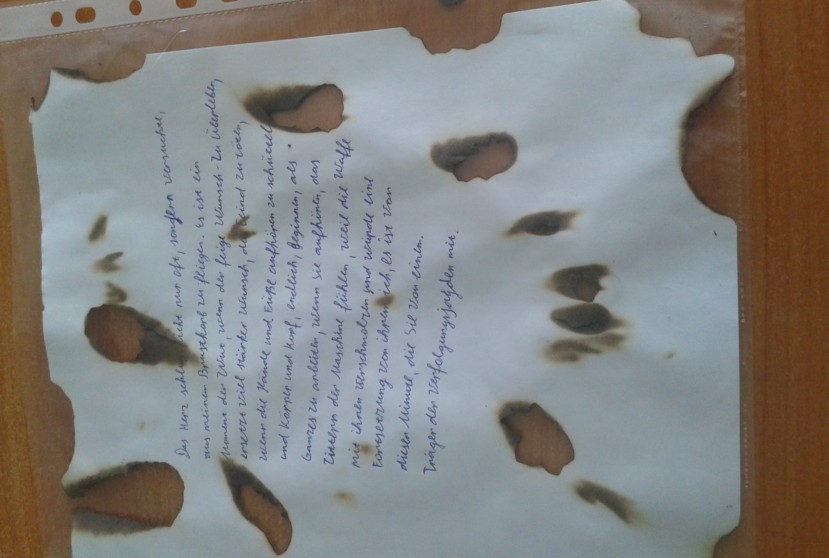 Das Herz schlug nicht nur oft, sondern versuchte,
aus meinem Brustkorb zu fliegen. Es ist ein
Moment der Wut, wenn der feige Wunsch - zu überleben,
viel stärker Wunsch, den Feind zu töten,
wenn die Hände und Füße aufhören zu schütteln
und Körper und Kopf, endlich, Beginnen, als
Ganzes zu arbeiten, wenn Sie aufhören, das
Zittern der Maschine fühlen, weil die Waffe
mit ihnen verschmolzen und wurde eine
Fortsetzung von ihnen sich, Es ist von
dieser Minute, die Sie von einem
Träger der Verfolgungsjagden mit.